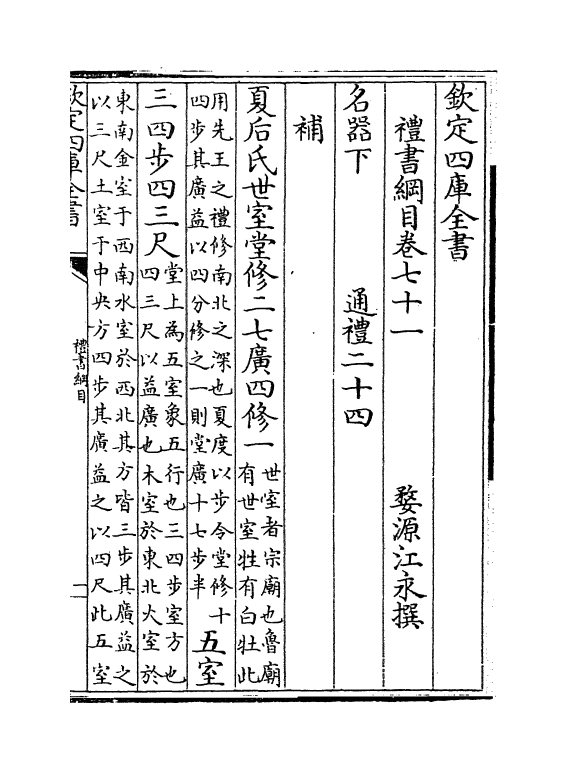 欽定四庫全書
禮書綱目卷七十一
婺源江永撰
名器下
通禮二十四
補
夏后氏世室堂修二七廣四修一
世室者宗廟也魯廟
有世室牲有白牡此
用先王之禮修南北之深也夏度以步令堂修十
四步其廣益以四分修之一則堂廣十七步半
五室
三四步四三尺
堂上為五室象五行也三四步室方也
四三尺以益廣也木室於東北火室於
東南金室于西南水室於西北其方皆三步其廣益之
以三尺土室于中央方四步其廣益之以四尺此五室
欽定四庫全書
禮書綱目